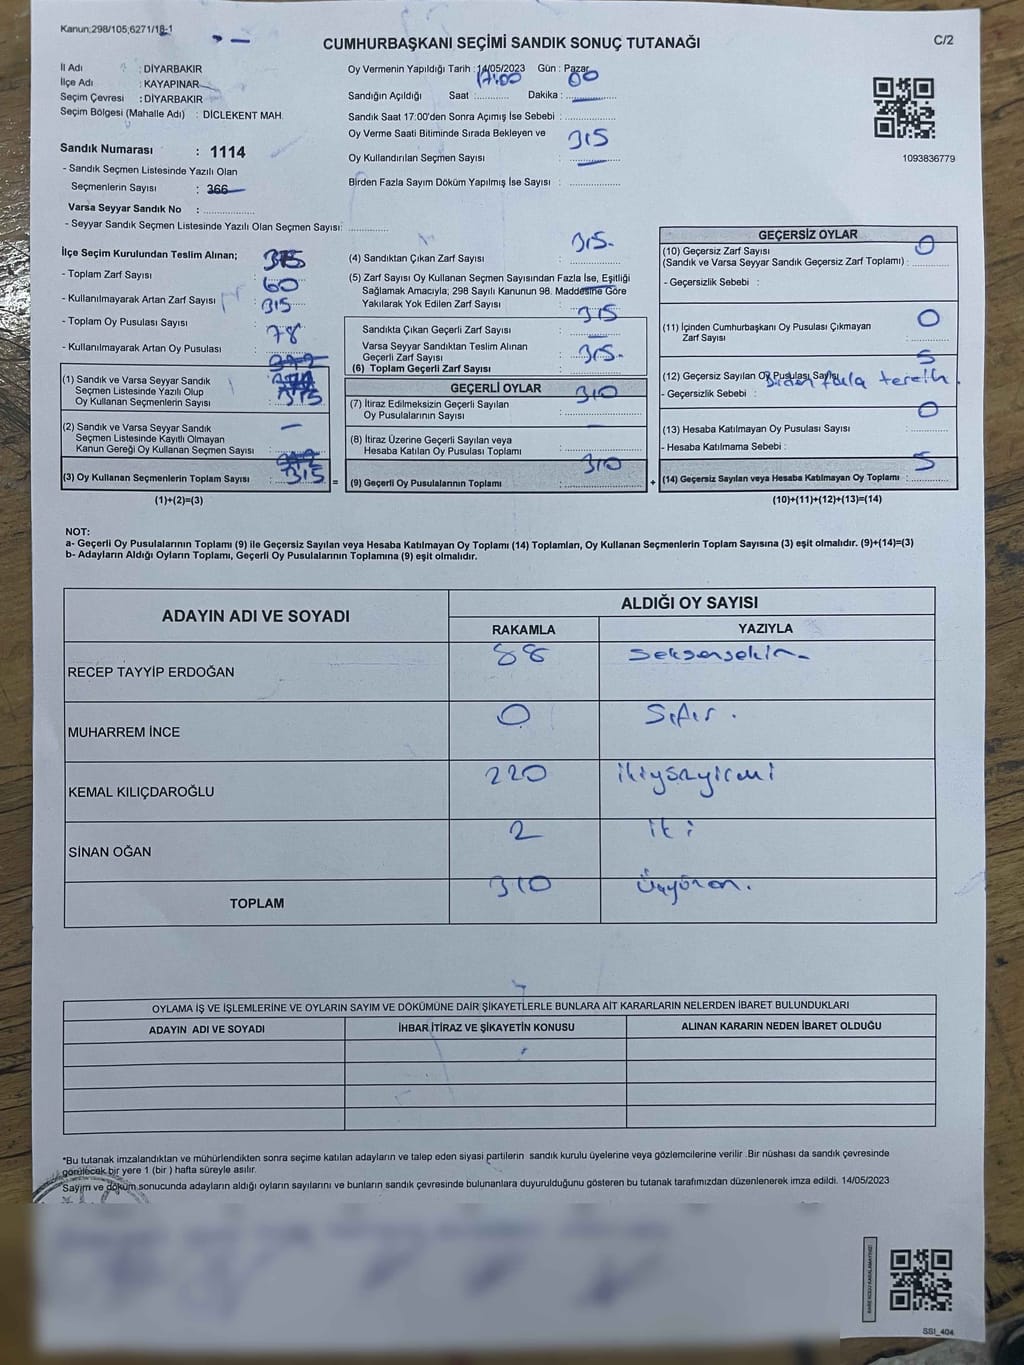 Kanun;298/105;6271/18-1
CUMHURBAŞKANI SEÇİMİ SANDIK SONUÇ TUTANAĞI
C/2
İl Adı : DİYARBAKIR
İlçe Adı : KAYAPINAR
Seçim Çevresi : DİYARBAKIR
Seçim Bölgesi (Mahalle Adı) : DİCLEKENT MAH.
Sandık Numarası : 1114
- Sandık Seçmen Listesinde Yazılı Olan
Seçmenlerin Sayısı : 366
Varsa Seyyar Sandık No :
- Seyyar Sandık Seçmen Listesinde Yazılı Olan Seçmen Sayısı:
Oy Vermenin Yapıldığı Tarih : 14/05/2023 Gün : Pazar
Sandığın Açıldığı Saat 17:00 Dakika : 00
Sandık Saat 17:00'den Sonra Açımış İse Sebebi :
Oy Verme Saati Bitiminde Sırada Bekleyen ve
Oy Kullandırılan Seçmen Sayısı : 315
Birden Fazla Sayım Döküm Yapılmış İse Sayısı :
1093836779
İlçe Seçim Kurulundan Teslim Alınan;
- Toplam Zarf Sayısı : 375
- Kullanılmayarak Artan Zarf Sayısı : 60
- Toplam Oy Pusulası Sayısı : 315
- Kullanılmayarak Artan Oy Pusulası : 78
(1) Sandık ve Varsa Seyyar Sandık
Seçmen Listesinde Yazılı Olup
Oy Kullanan Seçmenlerin Sayısı : 315
(2) Sandık ve Varsa Seyyar Sandık
Seçmen Listesinde Kayıtlı Olmayan
Kanun Gereği Oy Kullanan Seçmen Sayısı : —
(3) Oy Kullanan Seçmenlerin Toplam Sayısı : 315 =
(1)+(2)=(3)
(4) Sandıktan Çıkan Zarf Sayısı : 315.
(5) Zarf Sayısı Oy Kullanan Seçmen Sayısından Fazla İse, Eşitliği
Sağlamak Amacıyla; 298 Sayılı Kanunun 98. Maddesine Göre
Yakılarak Yok Edilen Zarf Sayısı : —
Sandıkta Çıkan Geçerli Zarf Sayısı : 315
Varsa Seyyar Sandıktan Teslim Alınan
Geçerli Zarf Sayısı : —
(6) Toplam Geçerli Zarf Sayısı : 315.
GEÇERLİ OYLAR
(7) İtiraz Edilmeksizin Geçerli Sayılan
Oy Pusulalarının Sayısı : 310
(8) İtiraz Üzerine Geçerli Sayılan veya
Hesaba Katılan Oy Pusulası Toplamı : —
(9) Geçerli Oy Pusulalarının Toplamı : 310 +
GEÇERSİZ OYLAR
(10) Geçersiz Zarf Sayısı
(Sandık ve Varsa Seyyar Sandık Geçersiz Zarf Toplamı) : 0
- Geçersizlik Sebebi :
(11) İçinden Cumhurbaşkanı Oy Pusulası Çıkmayan
Zarf Sayısı : 0
(12) Geçersiz Sayılan Oy Pusulası Sayısı 5
- Geçersizlik Sebebi : Birden fazla tercih.
(13) Hesaba Katılmayan Oy Pusulası Sayısı : 0
- Hesaba Katılmama Sebebi :
(14) Geçersiz Sayılan veya Hesaba Katılmayan Oy Toplamı : 5
(10)+(11)+(12)+(13)=(14)
NOT:
a- Geçerli Oy Pusulalarının Toplamı (9) ile Geçersiz Sayılan veya Hesaba Katılmayan Oy Toplamı (14) Toplamları, Oy Kullanan Seçmenlerin Toplam Sayısına (3) eşit olmalıdır. (9)+(14)=(3)
b- Adayların Aldığı Oyların Toplamı, Geçerli Oy Pusulalarının Toplamına (9) eşit olmalıdır.
ADAYIN ADI VE SOYADI
ALDIĞI OY SAYISI
RAKAMLA YAZIYLA
RECEP TAYYİP ERDOĞAN 88 Seksensekiz
MUHARREM İNCE 0 Sıfır.
KEMAL KILIÇDAROĞLU 220 ikiyüzyirmi
SİNAN OĞAN 2 iki
TOPLAM 310 Üçyüzon.
OYLAMA İŞ VE İŞLEMLERİNE VE OYLARIN SAYIM VE DÖKÜMÜNE DAİR ŞİKAYETLERLE BUNLARA AİT KARARLARIN NELERDEN İBARET BULUNDUKLARI
ADAYIN ADI VE SOYADI İHBAR İTİRAZ VE ŞİKAYETİN KONUSU ALINAN KARARIN NEDEN İBARET OLDUĞU
*Bu tutanak imzalandıktan ve mühürlendikten sonra seçime katılan adayların ve talep eden siyasi partilerin sandık kurulu üyelerine veya gözlemcilerine verilir .Bir nüshası da sandık çevresinde
görülecek bir yere 1 (bir ) hafta süreyle asılır.
Sayım ve döküm sonucunda adayların aldığı oyların sayılarını ve bunların sandık çevresinde bulunanlara duyurulduğunu gösteren bu tutanak tarafımızdan düzenlenerek imza edildi. 14/05/2023
SSI_404